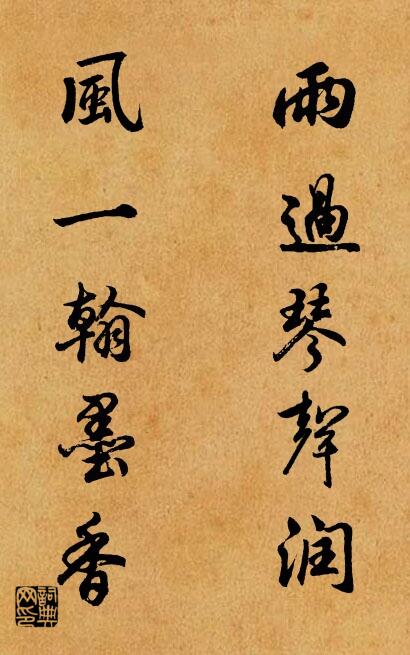 雨過琴聲润
風一翰墨香
詞典网印